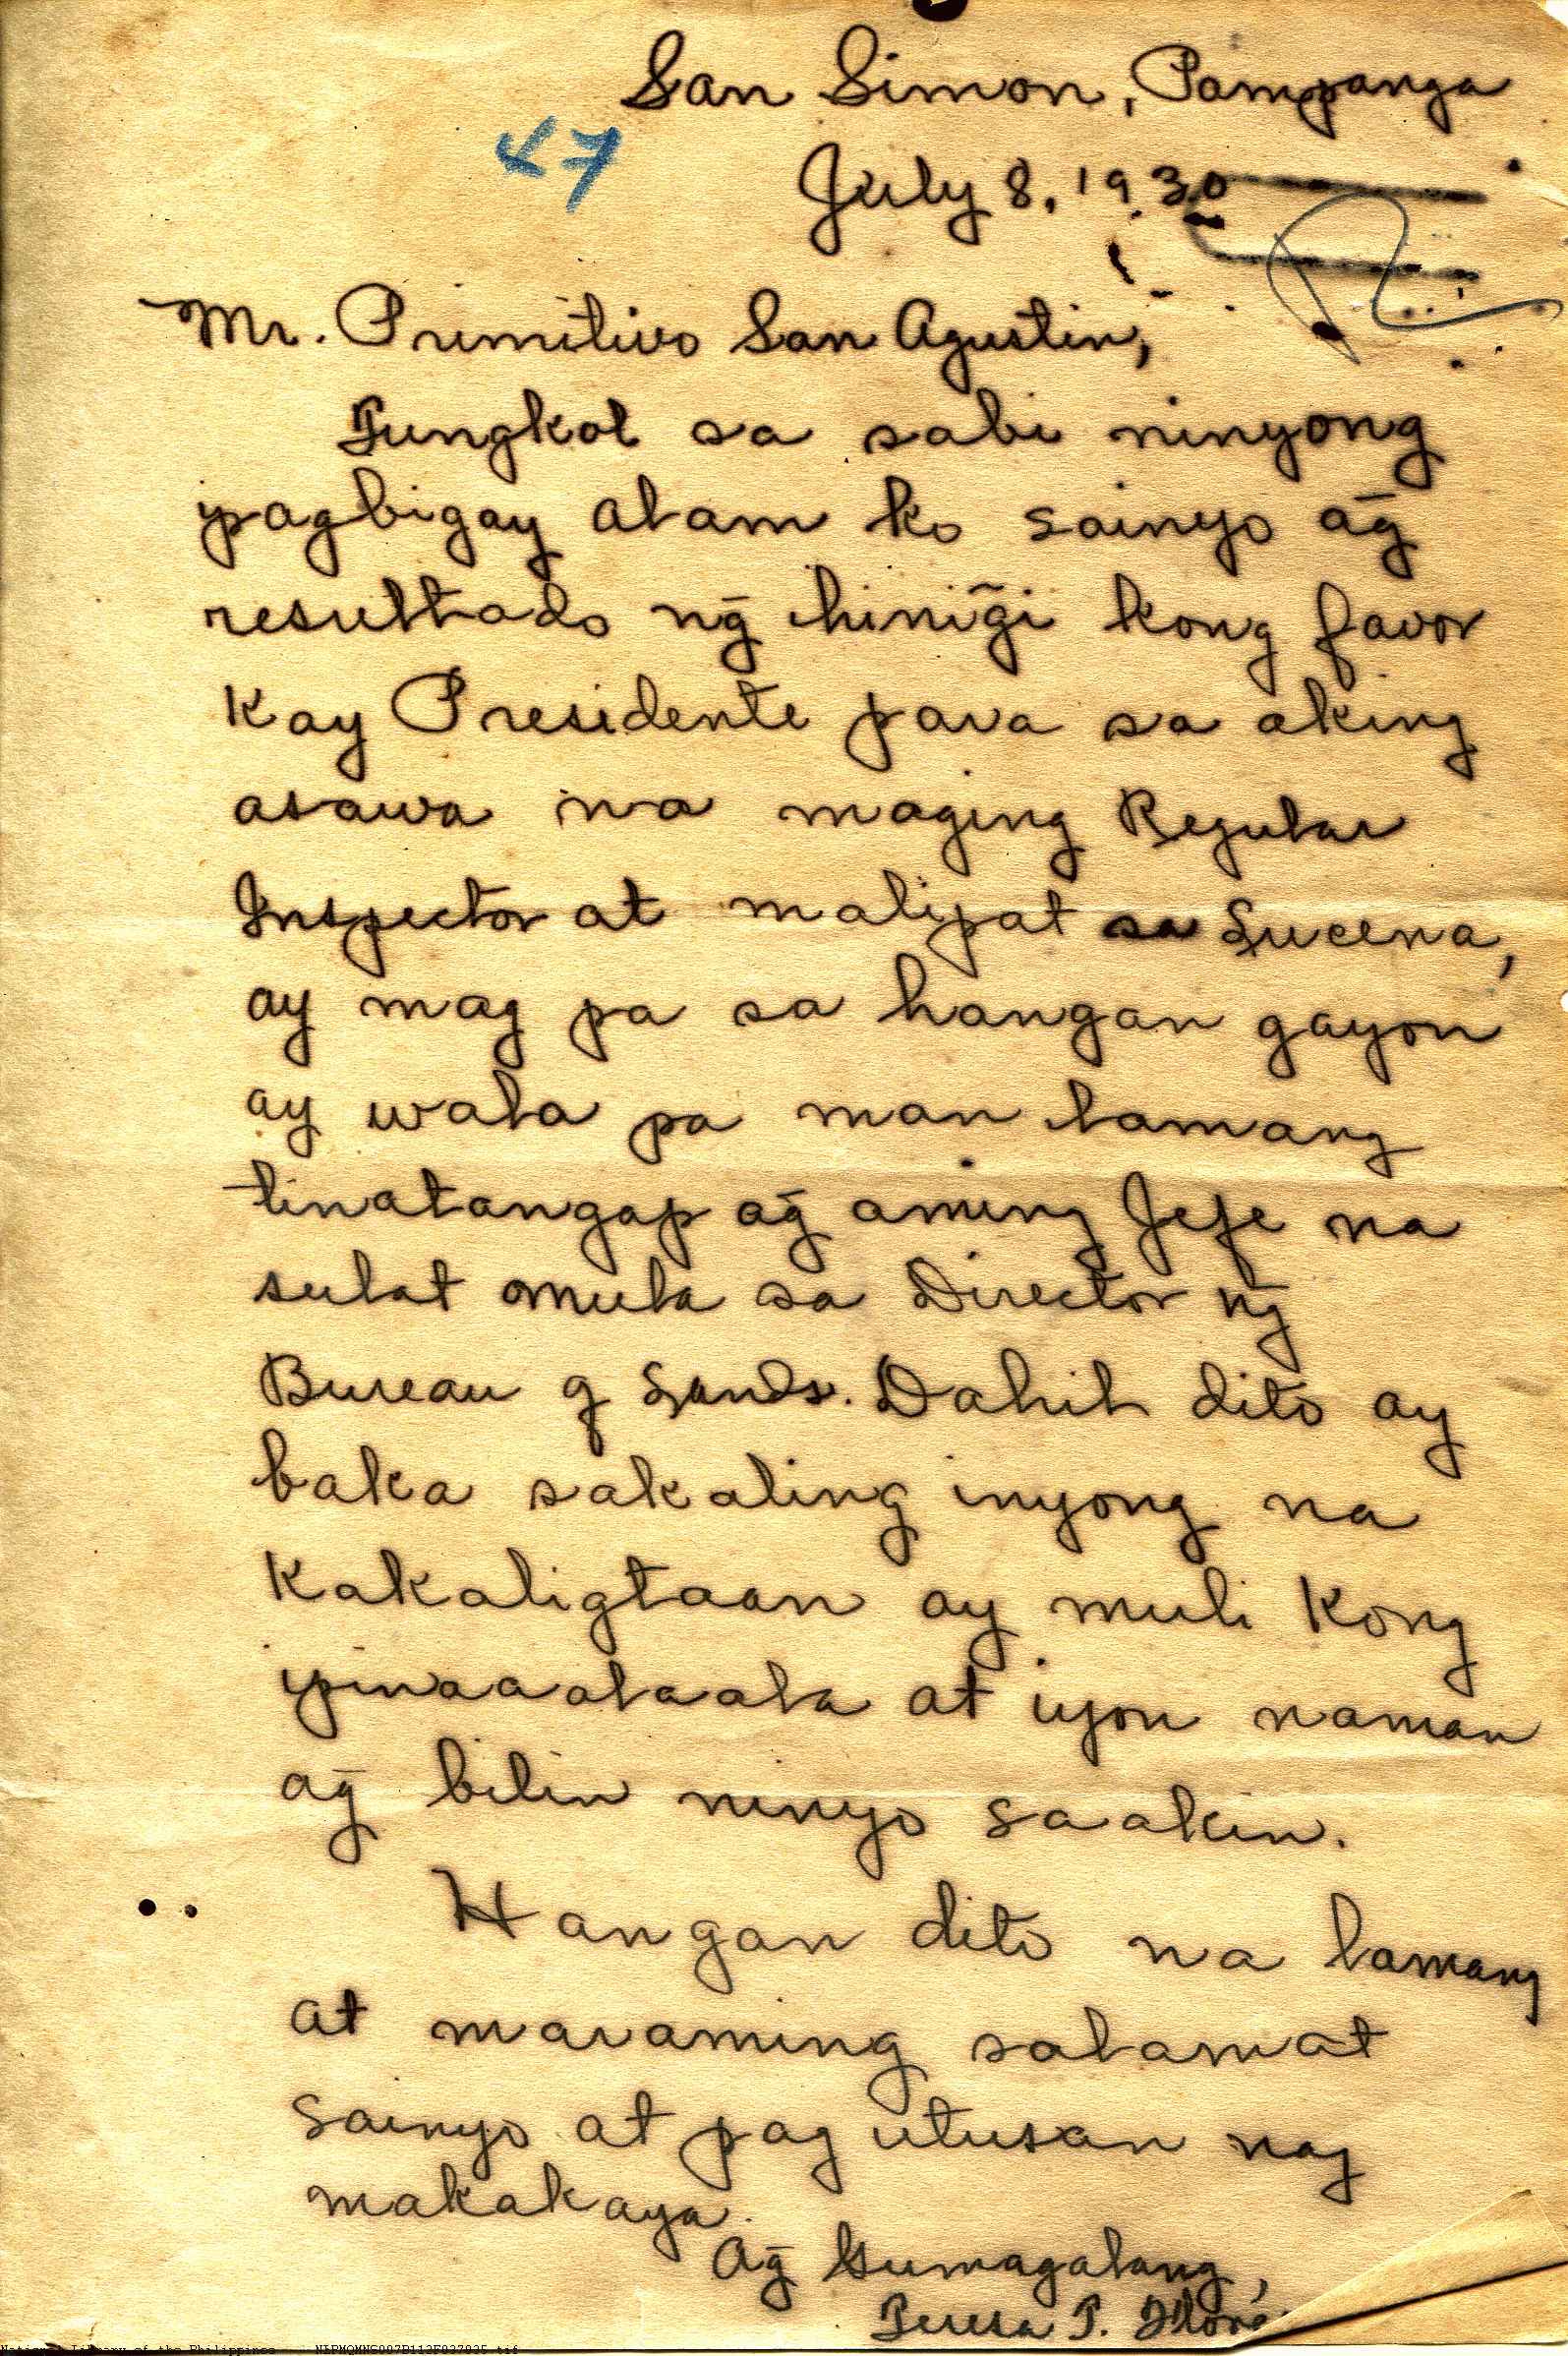 San Simon, Pampanga
July 8, 1930
Mr. Primitivo San Agustin,
Tungkol sa sabi ninyong
ipagbigay alam ko sainyo ag̃
resultado ng̃ hinig̃i kong favor
kay Presidente para sa aking
asawa na maging Regular
Inspector at malipat sa Lucena,
ay mag pa sa hangan gayon
ay wala pa man lamang
tinatangap ag̃ aming Jefe na
sulat mula sa Director ng̃
Bureau of Lands. Dahil dito ay
baka sakaling inyong na
kakaligtaan ay muli kong
ipinaaalaala at iyon naman
ag̃ bilin ninyo saakin.
Hangan dito na lamang
at maraming salamat
sainyo at pag utusan nag
makakaya.
Ag̃ Gumagalang,
Teresa P.
National Library of the Philippines